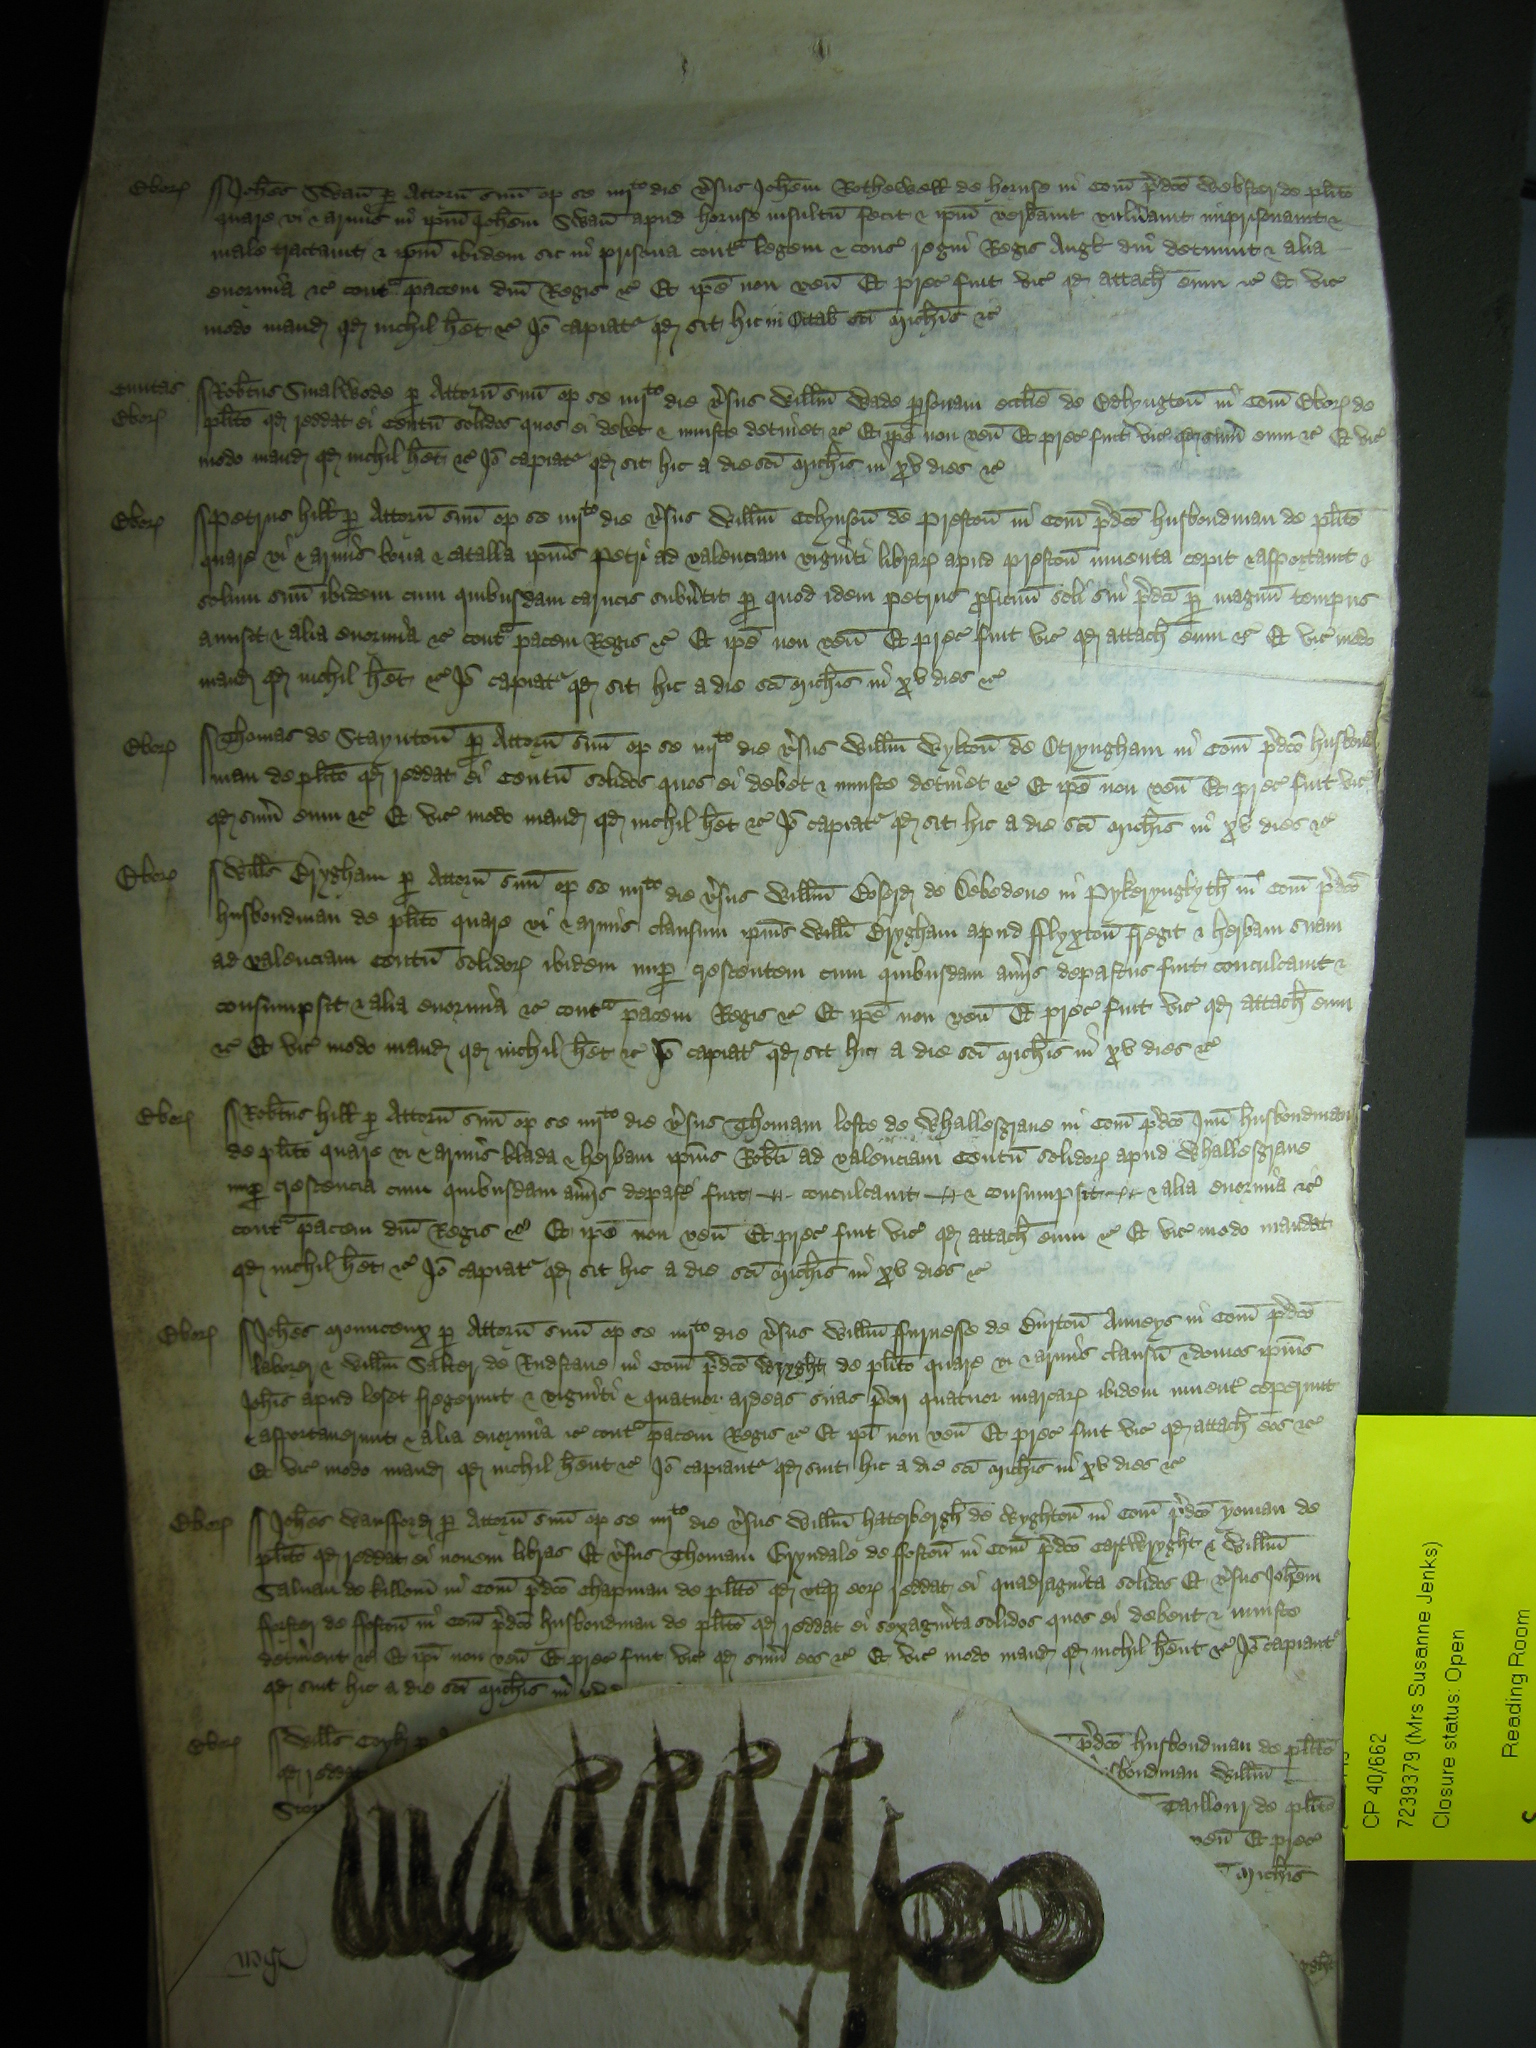 Ebor̄ Joh̄es Swan̄ p̱ Attorn̄ suū op̱ se iiijto die v̓sus Joh̄em Rothewell de hornse in Com̄ p̓dc̄o Webster de pl̄ito
quare vi & armis in ip̄m Joh̄em Swan̄ apud hornse insultū fecit & ip̄m verb̓avit vuln̓avit imprisonavit &
male tractavit & ip̄m ibidem sic in prisona cont̓ legem & cons̓ regni Regis Angl̄ dn̄i detinuit & alia
enormia &c̓ cont̓ pacem dn̄i Regis &c̓ Et ip̄e non ven̄ Et prec̓ fuit vic̓ qd̓ attach̄ eum &c̓ Et vic̓
modo mand̓ qd̓ nichil h̄et &c̓ Jō capiat̓ qd̓ sit hic in Octab̄ sc̄i Mich̄is &c̓
Civitas Ebor̄ Rob̄tus Smalwode p̱ Attorn̄ suū op̱ se iiijto die v̓sus Will̄m Wade p̱sonam eccl̄ie de Edlyngton̄ in Com̄ Ebor̄ de
pl̄ito qd̓ reddat ei Centū solidos quos ei debet & iniuste detinet &c̓ Et ip̄e non ven̄ Et prec̓ fuit vic̓ qd̓ sum̄ eum &c̓ Et vic̓
modo mand̓ qd̓ nichil h̄et &c̓ Jō capiat̓ qd̓ sit hic a die sc̄i Mich̄is in xv dies &c̓
Ebor̄ Petrus hill p̱ Attorn̄ suū op̱ se iiijto die v̓sus Will̄m Colynson̄ de Preston̄ in Com̄ p̓dc̄o husbondman de pl̄ito
quare vi & armis bona & catalla ip̄ius Petri ad valenciam viginti librar̄ apud Preston̄ inventa cepit & asportavit &
solum suū ibidem cum quibusdam carucis subv̓tit p̱ quod idem Petrus proficuū soli sui p̓dc̄i p̱ magnū tempus
amisit & alia enormia &c̓ cont̓ pacem Regis &c̓ Et ip̄e non ven̄ Et prec̓ fuit vic̓ qd̓ attach̄ eum &c̓ Et vic̓ modo
mand̓ qd̓ nichil h̄et &c̓ Jō capiat̓ qd̓ sit hic a die sc̄i Mich̄is in xv dies &c̓
Ebor̄ Thomas de Staynton̄ p̱ Attorn̄ suū op̱ se iiijto die v̓sus Will̄m Wylton̄ de Otryngham in Com̄ p̓dc̄o husbond
man de pl̄ito qd̓ reddat ei Centū solidos quos ei debet & iniuste detinet &c̓ Et ip̄e non ven̄ Et prec̓ fuit vic̓
qd̓ sum̄ eum &c̓ Et vic̓ modo mand̓ qd̓ nichil h̄et &c̓ Jō capiat̓ qd̓ sit hic a die sc̄i Mich̄is in xv dies &c̓
Ebor̄ Will̄s Erygham p̱ Attorn̄ suū op̱ se iiijto die v̓sus Will̄m de in Pykeryngly̓th in Com̄ p̓dc̄o
husbondman de pl̄ito quare vi & armis clausum ip̄ius Will̄i Erygham apud fflyxton̄ fregit & herbam suam
ad valenciam Centū solidor̄ ibidem nup̱ crescentem cum quibusdam av̓iis depastus fuit conculcavit &
consumpsit & alia enormia &c̓ cont̓ pacem Regis &c̓ Et ip̄e non ven̄ Et prec̓ fuit vic̓ qd̓ attach̄ eum
&c̓ Et vic̓ modo mand̓ qd̓ nichil h̄et &c̓ Jō capiat̓ qd̓ sit hic a die sc̄i Mich̄is in xv dies &c̓
Ebor̄ Rob̄tus hill p̱ Attorn̄ suū op̱ se iiijto die v̓sus Thomam lofte de Whallesgrave in Com̄ p̓dc̄o husbondman
de pl̄ito quare vi & armis blada & herbam ip̄ius Rob̄ti ad valenciam Centū solidor̄ apud Whallesgrave
nup̱ crescencia cum quibusdam av̓iis depast̓ fuit conculcavit & consumpsit & alia enormia &c̓
cont̓ pacem dn̄i Regis &c̓ Et ip̄e non ven̄ Et prec̓ fuit vic̓ qd̓ attach̄ eum &c̓ Et vic̓ modo mandat
qd̓ nichil h̄et &c̓ Jō capiat̓ qd̓ sit hic a die sc̄i Mich̄is in xv dies &c̓
Ebor̄ Joh̄es Mounceux p̱ Attorn̄ suū op̱ se iiijto die v̓sus Will̄m ffurnesse de Burton̄ Anneys in Com̄ p̓dc̄o
laborer & Will̄m Salter de Rudstane in Com̄ p̓dc̄o Wryght de pl̄ito quare vi & armis clausū & domos ip̄ius
Joh̄is apud leset fregerunt & viginti & quatuor ardeas suas p̓cii quatuor marcar̄ ibidem invent̓ ceperunt
& asportaverunt & alia enormia &c̓ cont̓ pacem Regis &c̓ Et ip̄i non ven̄ Et prec̓ fuit vic̓ qd̓ attach̄ eos &c̓
Et vic̓ modo mand̓ qd̓ nichil h̄ent &c̓ Jō capiant̓ qd̓ sint hic a die sc̄i Mich̄is in xv dies &c̓
Ebor̄ Joh̄es Wansford̓ p̱ Attorn̄ suū op̱ se iiijto die v̓sus Will̄m haterbergh̄ de Wyghton̄ in Com̄ p̓dc̄o yoman de
pl̄ito qd̓ reddat ei novem libras Et v̓sus Thomam Gryndale de ffoston̄ in Com̄ p̓dc̄o Cartwryght & Will̄m
Salman de killom̄ in Com̄ p̓dc̄o Chapman de pl̄ito qd̓ utq̓ eor̄ reddat ei quadraginta solidos Et v̓sus Joh̄em
de ffoston̄ in Com̄ p̓dc̄o husbondman de pl̄ito qd̓ reddat ei sexaginta solidos quos ei debent & iniuste
detinent &c̓ Et ip̄i non ven̄ Et prec̓ fuit vic̓ qd̓ sum̄ eos &c̓ Et vic̓ modo mand̓ qd̓ nichil h̄ent &c̓ Jō capiant̓
qd̓ sint hic a die sc̄i Mich̄is in xv
Ebor̄ Will̄s p̓dc̄o husbondman de pl̄ito
qd̓ reddat bondman Will̄m
Taillour de pl̄ito
ven̄ Et prec̓
Mich̄is
CP 40/662
7239379 (Mrs Susanne Jenks)
Closure status: Open
Reading Room